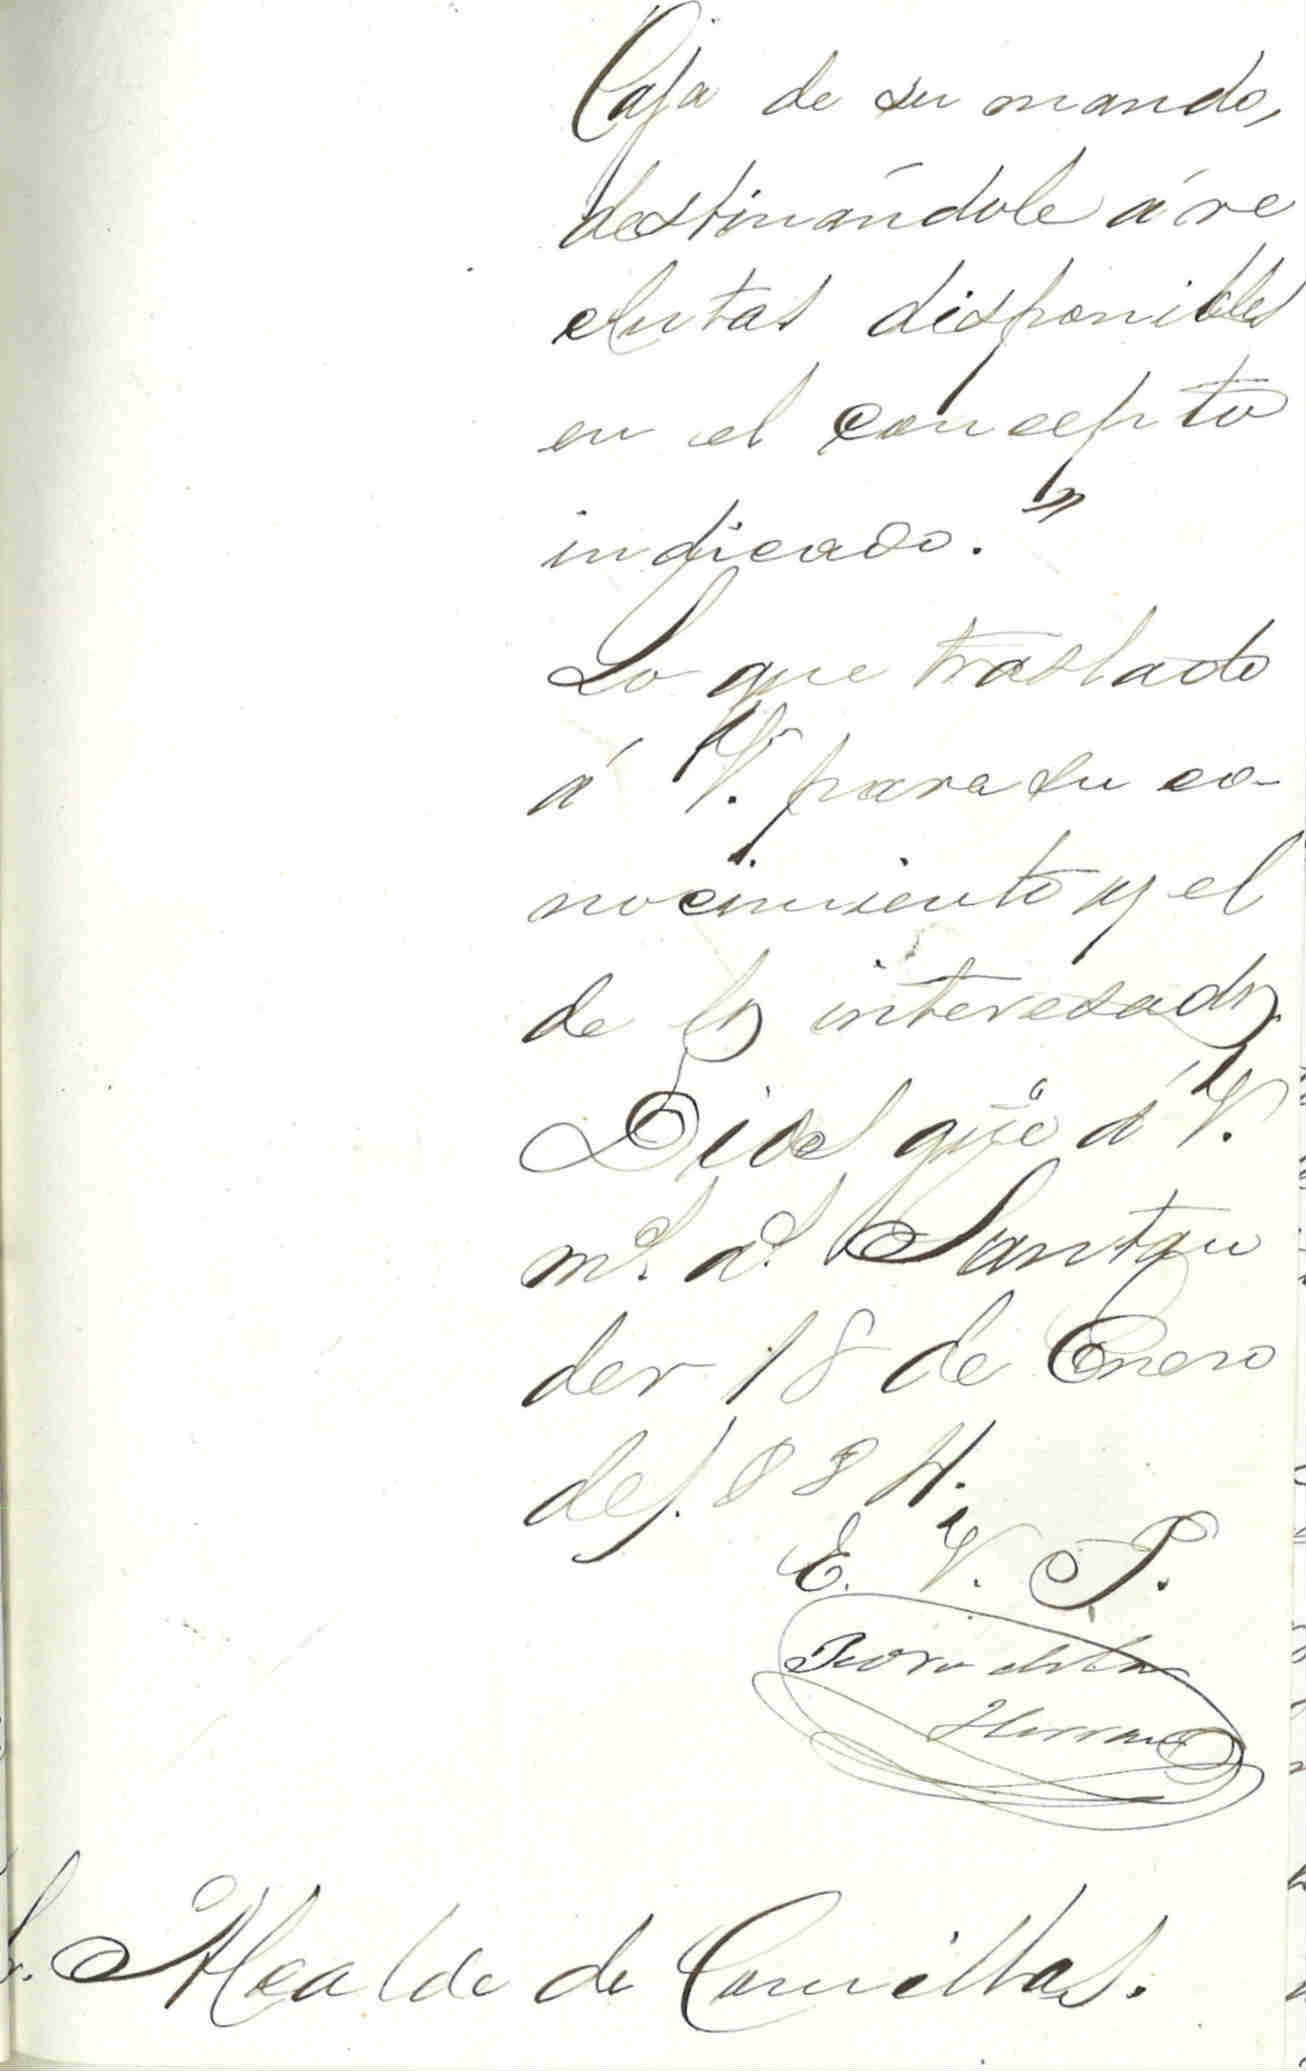 Caja de su mando,
destinándole á re
clutas disponibles
en el concepto
indicado."
Lo que traslado
á V. para su co-
nocimiento y el
de los interesados
Dios güe á V.
ms. as. Santan
der 18 de Enero
de 1.884.
E. V. P.
de la
Herran
Alcalde de Comillas.